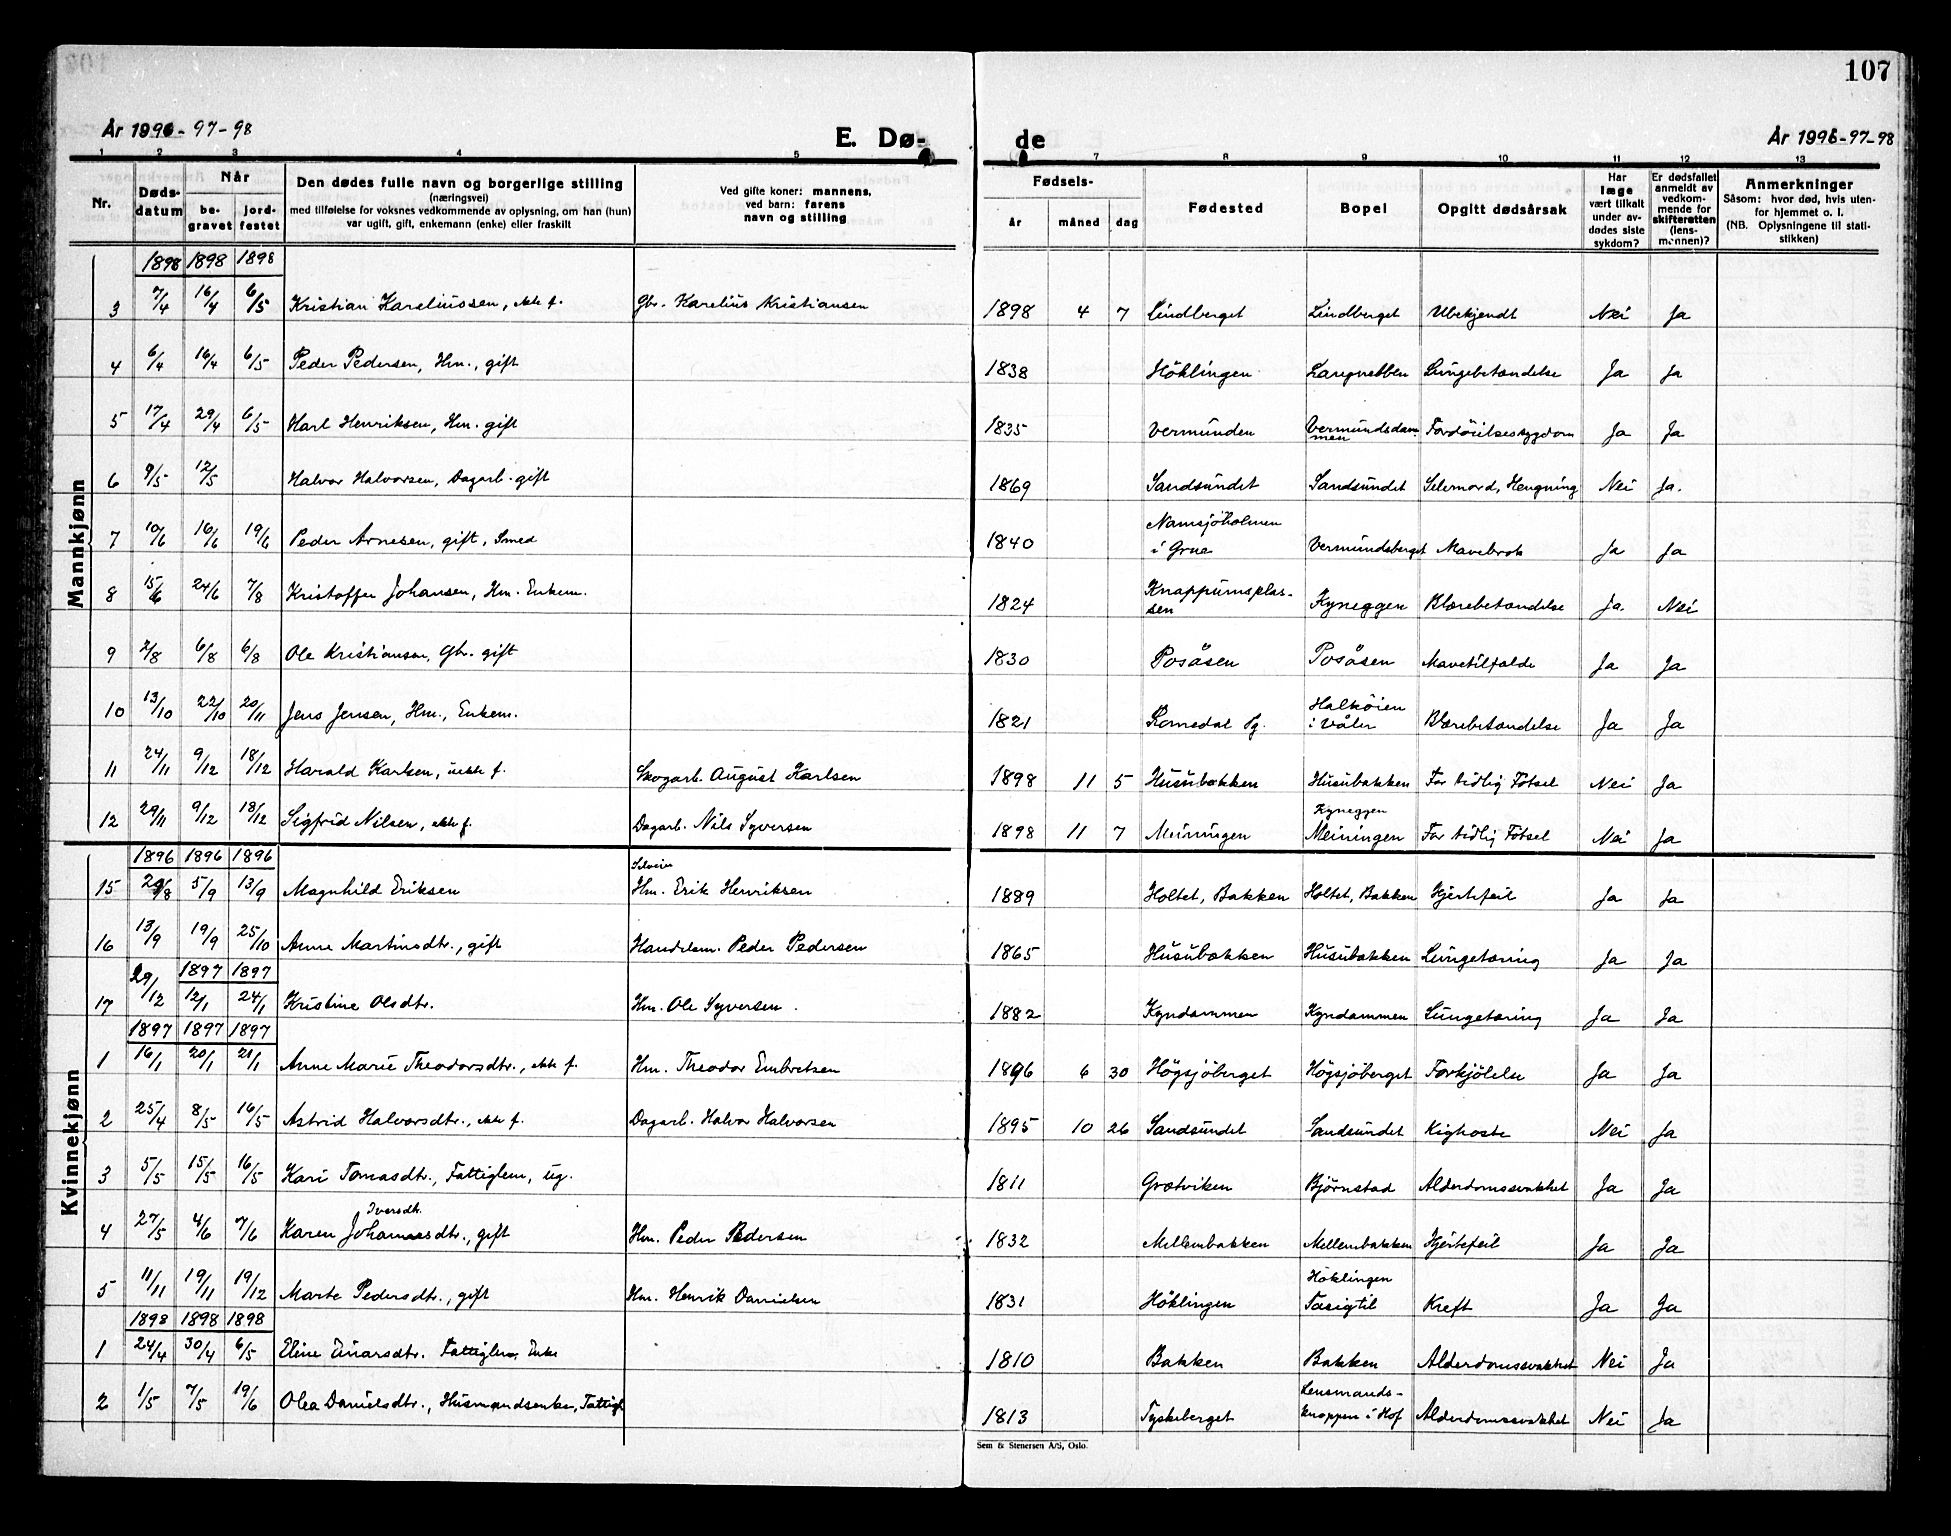 107
År 1996-97-98
E. Dø-
de
År 1996-97-98
1 2 3 4 5 7 8 9 10 11 12 13
Nr.
Døds-
datum
Når
be-
gravet
jord-
festet
Den dødes fulle navn og borgerlige stilling
(næringsvei)
med tilføielse for voksnes vedkommende av oplysning, om han (hun)
var ugift, gift, enkemann (enke) eller fraskilt
Ved gifte koner: mannens,
ved barn: farens
navn og stilling
Fødsels-
år måned dag
Fødested
Bopel
Opgitt dødsårsak
Har
læge
vært tilkalt
under av-
dødes siste
sykdom?
Er dødsfallet
anmeldt av
vedkom-
mende for
skifteretten
(lens-
mannen)?
Anmerkninger
Såsom: hvor død, hvis uten-
for hjemmet o. l.
(NB. Oplysningene til stati-
stikken)
Mannkjønn
1898 1898 1898
3 7/4 16/4 6/5 Kristian Kareliussen, ekte f. Gbr. Karelius Kristiansen 1898 4 7 Lindberget Lindberget Ubekjendt Nei Ja
4 6/4 16/4 6/5 Peder Pedersen, Hm., gift 1838 Höklingen Langnebben Lungebetændelse Ja Ja
5 17/4 29/4 6/5 Karl Henriksen, Hm. gift 1835 Vermunden Vermundsdam-
men Fordöielsessygdom Ja Ja
6 9/5 12/5 Halvor Halvorsen, Dagarb. gift 1869 Sandsundet Sandsundet Selvmord, Hengning Nei Ja.
7 10/6 16/6 19/6 Peder Arnesen, gift, Smed 1840 Namsjöholmen
i Grue Vermundsberget Mavebrok Ja Ja
8 15/6 24/6 7/8 Kristoffer Johansen, Hm. Enkem. 1824 Knappumsplas-
sen Kyneggen Blærebetændelse Ja. Nei
9 2/8 6/8 6/8 Ole Kristiansen, Gbr. gift 1830 Posåsen Posåsen Mavetilfælde Ja Ja
10 13/10 22/10 20/11 Jens Jensen, Hm., Enkem. 1821 Romedal Pg. Halköien
i Våler Blærebetændelse Ja Ja
11 24/11 9/12 18/12 Harald Karlsen, uekte f. Skogarb. August Karlsen 1898 11 5 Husubakken Husubakken For tidlig Fötsel Nei Ja
12 29/11 9/12 18/12 Sigfrid Nilsen, ekte f. Dagarb. Nils Syversen 1898 11 7 Meiningen Kyneggen
Meiningen For tidlig Fötsel Nei Ja
Kvinnekjønn
1896 1896 1896
15 29/8 5/9 13/9 Magnhild Eriksen Selveier
Hm. Erik Henriksen 1889 Holtet, Bakken Holtet, Bakken Hjertefeil Ja Ja
16 13/9 19/9 25/10 Anne Martinsdtr., gift Handelsm. Peder Pedersen 1865 Husubakken Husubakken Lungetæring Ja Ja
1897 1897
17 29/12 12/1 24/1 Kristine Olsdtr. Hm. Ole Syversen. 1882 Kyndammen Kyndammen Lungetæring Ja Ja
1897 1897 1897
1 16/1 20/1 21/1 Anne Marie Theodorsdtr., ekte f. Hm. Theodor Embretsen 1896 6 30 Högsjöberget Högsjöberget Forkjölelse Ja Ja
2 25/4 8/5 16/5 Astrid Halvorsdtr., ekte f. Dagarb. Halvor Halvorsen 1895 10 26 Sandsundet Sandsundet Kighoste Nei Ja
3 5/5 15/5 16/5 Kari Tomasdtr., Fattiglem, ug. 1811 Grætviken Bjørnstad Alderdomssvakhet Ja Ja
4 27/5 4/6 7/6 Iversdtr.
Karen Johannesdtr., gift Hm. Peder Pedersen 1832 Mellembakken Mellembakken Hjertefeil Ja Ja
5 11/11 19/11 19/12 Marte Pedersdtr., gift Hm. Henrik Danielsen 1831 Höklingen Höklingen
Tasigtil Kreft Ja Ja
1898 1898 1898
1 24/4 30/4 6/5 Eline Einarsdtr. Fattiglem, Enke 1810 Bakken Bakken Alderdomssvakhet Nei Ja
2 1/5 7/5 19/6 Olea Danielsdtr., Husmandsenke, Fattigl. 1813 Tyskeberget Lensmands-
knappen i Hof Alderdomssvakhet Nei Ja
Sem & Stenersen A/S, Oslo.